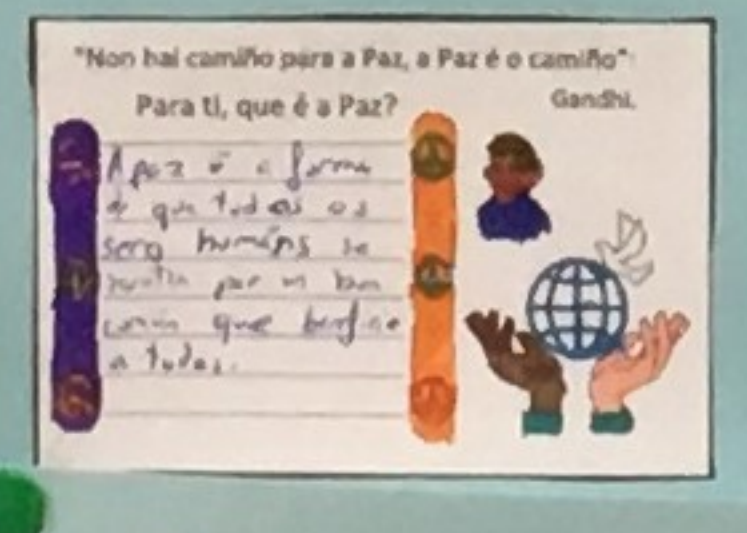 "Non hai camiño para a Paz, a Paz é o camiño":
Gandhi.
Para ti, que é a Paz?
A paz é a forma
de que todos os
sero humáns se
por un ben
común que
a todos.